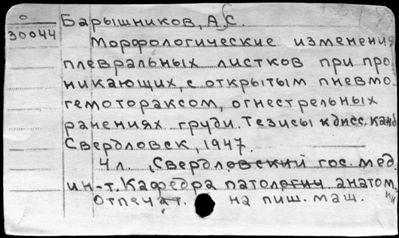 О
30044
Барышников, А.С.
Морфологические изменения
плевральных листков при про-
никающих, с открытым пневмо-
гемотораксом, огнестрельных
ранениях груди. Тезисы к дисс. канд.
Свердловск, 1947.
4 л. (Свердловский гос. мед.
ин-т. Кафедра патологич анатомии
Отпечат. на пиш. маш.